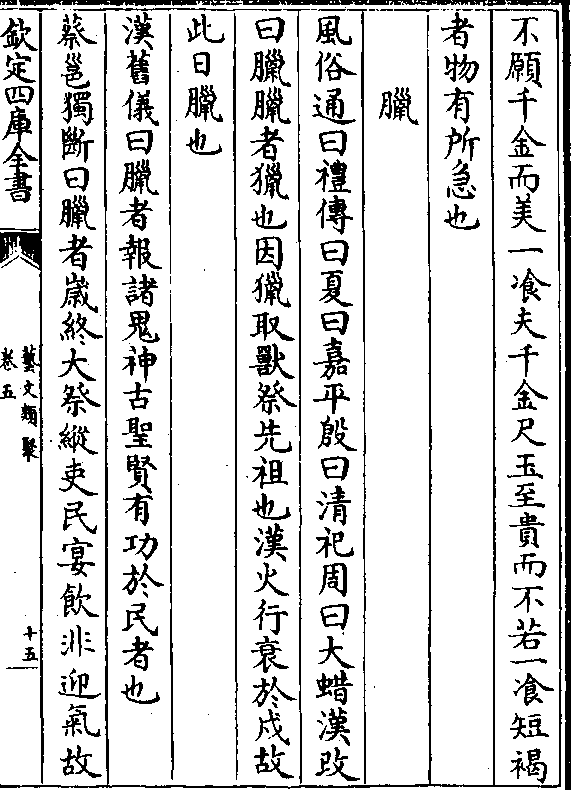 不願千金而美一飡夫千金尺玉至貴而不若一飡短褐
者物有所急也
臘
風俗通曰禮傳曰夏曰嘉平殷曰清祀周曰大蜡漢改
曰臘臘者獵也因獵取獸祭先祖也漢火行衰於戍故
此日臘也
漢舊儀曰臘者報諸鬼神古聖賢有功於民者也
蔡邕獨斷曰臘者嵗終大祭縱吏民宴飲非迎氣故
欽定四庫全書
藝文類聚
卷五
十五